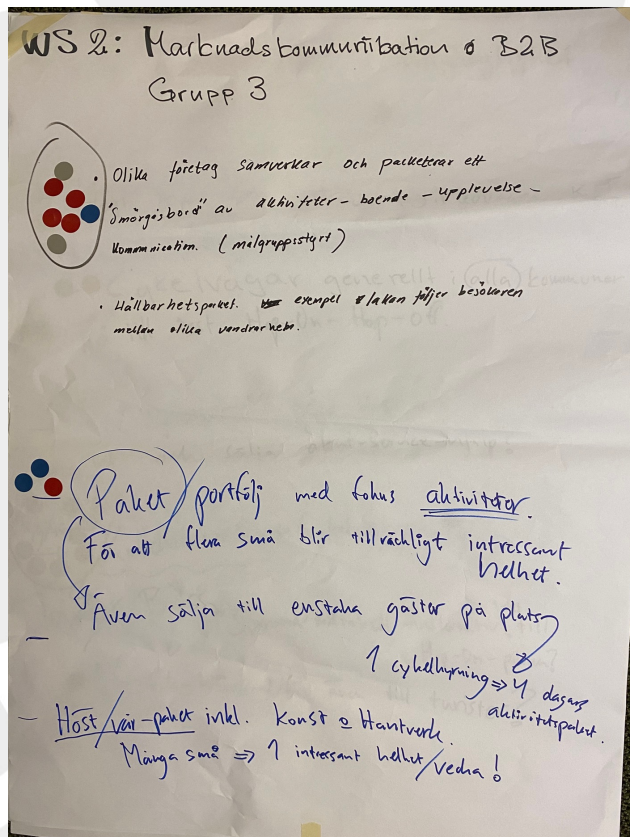 WS 2: Marknadskommunikation o B2B
Grupp 3
• Olika företag samverkar och packeterar ett
"Smörgåsbord" av aktiviteter - boende - upplevelse -
kommunication. (målgruppsstyrt)
• Hållbarhetspaket. exempel lakan följer besökaren
mellan olika vandrarhem.
Paket/portfölj med fokus aktiviteter.
För att flera små blir tillräckligt intressant
helhet.
Även sälja till enstaka gäster på plats
1 cykelhyrning => 4 dagars
aktivitetspaket.
- Höst/vår-paket inkl. Konst o Hantverk.
Många små => 1 intressant helhet/vecka!